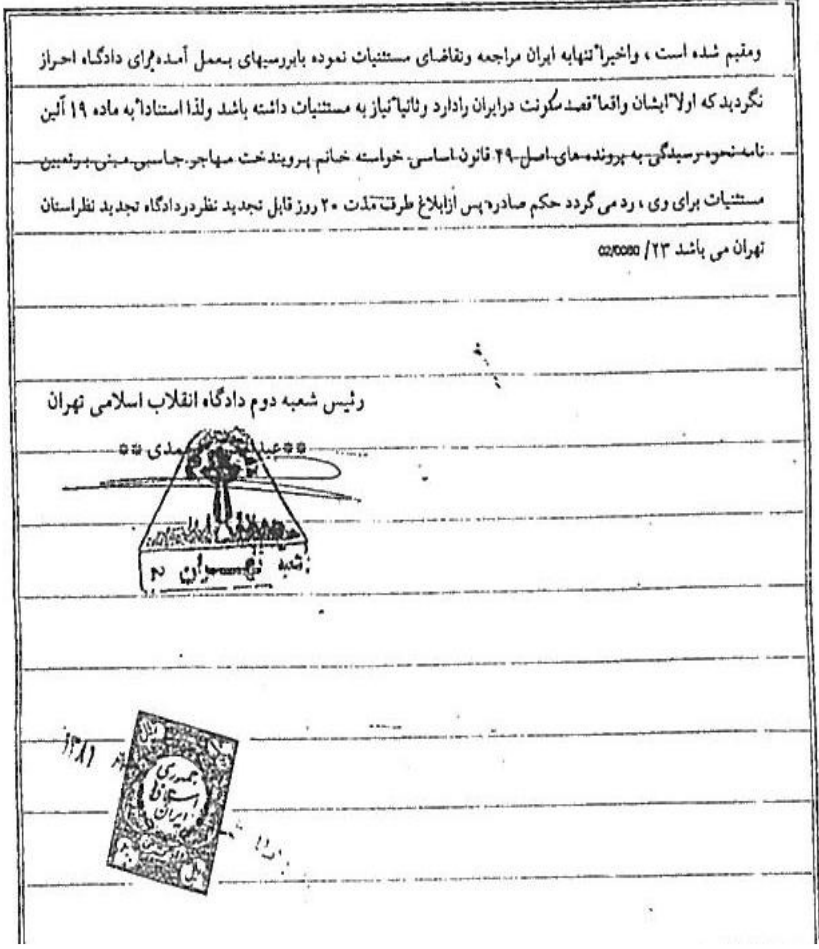 ومقیم شده است ، واخیرا"تنهابه ایران مراجعه وتقاضای مستثنیات نموده بابررسیهای بعمل آمده برای دادگاه احراز
نگردید که اولا"ایشان واقعا"قصد سکونت درایران رادارد وثانیا"نیاز به مستثنیات داشته باشد ولذا استنادا"به ماده ۱۹ آئین
نامه نحوه رسیدگی به پرونده های اصل ۴۹ قانون اساسی خواسته خانم پرویندخت مهاجر جاسبی مبنی بر تعیین
مستثنیات برای وی ، رد می گردد حکم صادره پس ازابلاغ ظرف مدت ۲۰ روز قابل تجدید نظر دردادگاه تجدید نظراستان
تهران می باشد ۲۳/
رئیس شعبه دوم دادگاه انقلاب اسلامی تهران
شعبه ۲ تهران
۱۳۸۱
ریال
جمهوری
اسلامی
ایران
ریال